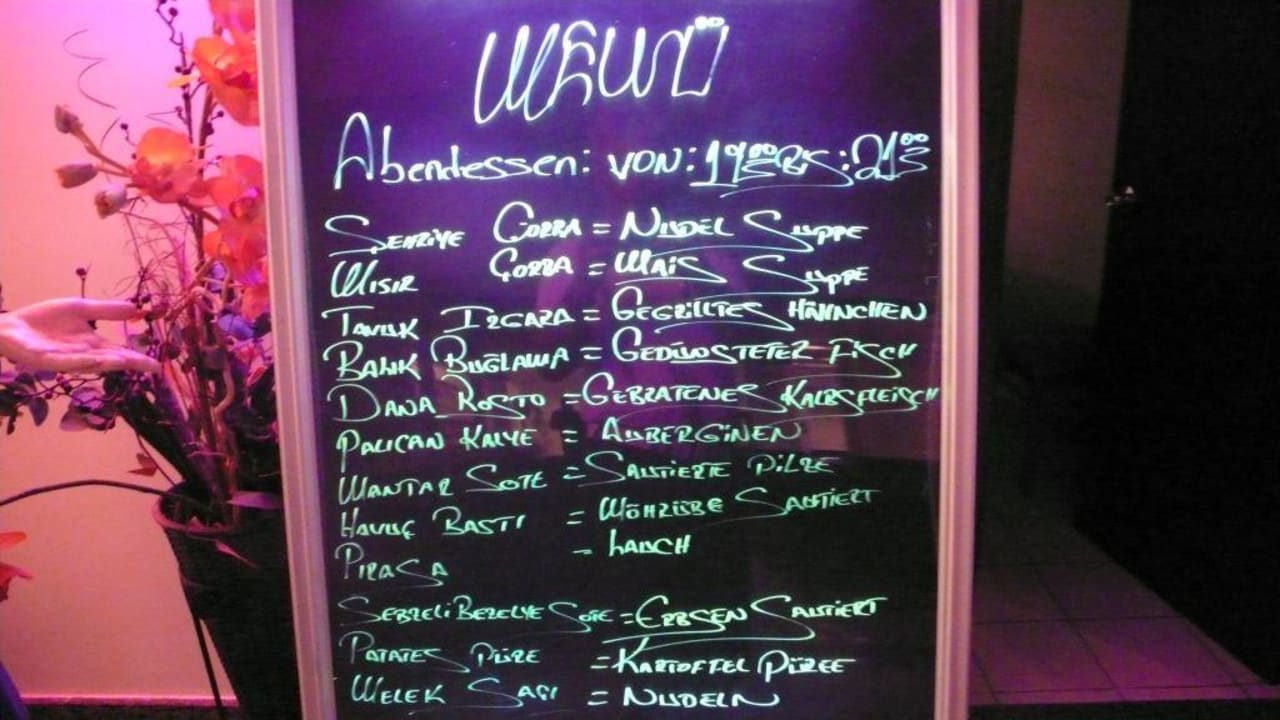 MENÜ
Abendessen: VON: 19 00 BIS: 21 00
ŞEHRİYE ÇORBA = NUDEL SUPPE
MISIR ÇORBA = MAIS SUPPE
TAVUK IZGARA = GEGRILLTES HÄHNCHEN
BALIK BUĞLAMA = GEDÜNSTETER FISCH
DANA ROSTO = GEBRATENES KALBSFLEISCH
PALICAN KALYE = AUBERGINEN
MANTAR SOTE = SAUTIERTE PILZE
HAVUÇ BASTI = MÖHRÜBE SAUTIERT
PIRASA = LAUCH
SEBZELI BEZELYE SOTE = ERBSEN SAUTIERT
PATATES PÜRE = KARTOFFEL PÜREE
MELEK SAÇI = NUDELN